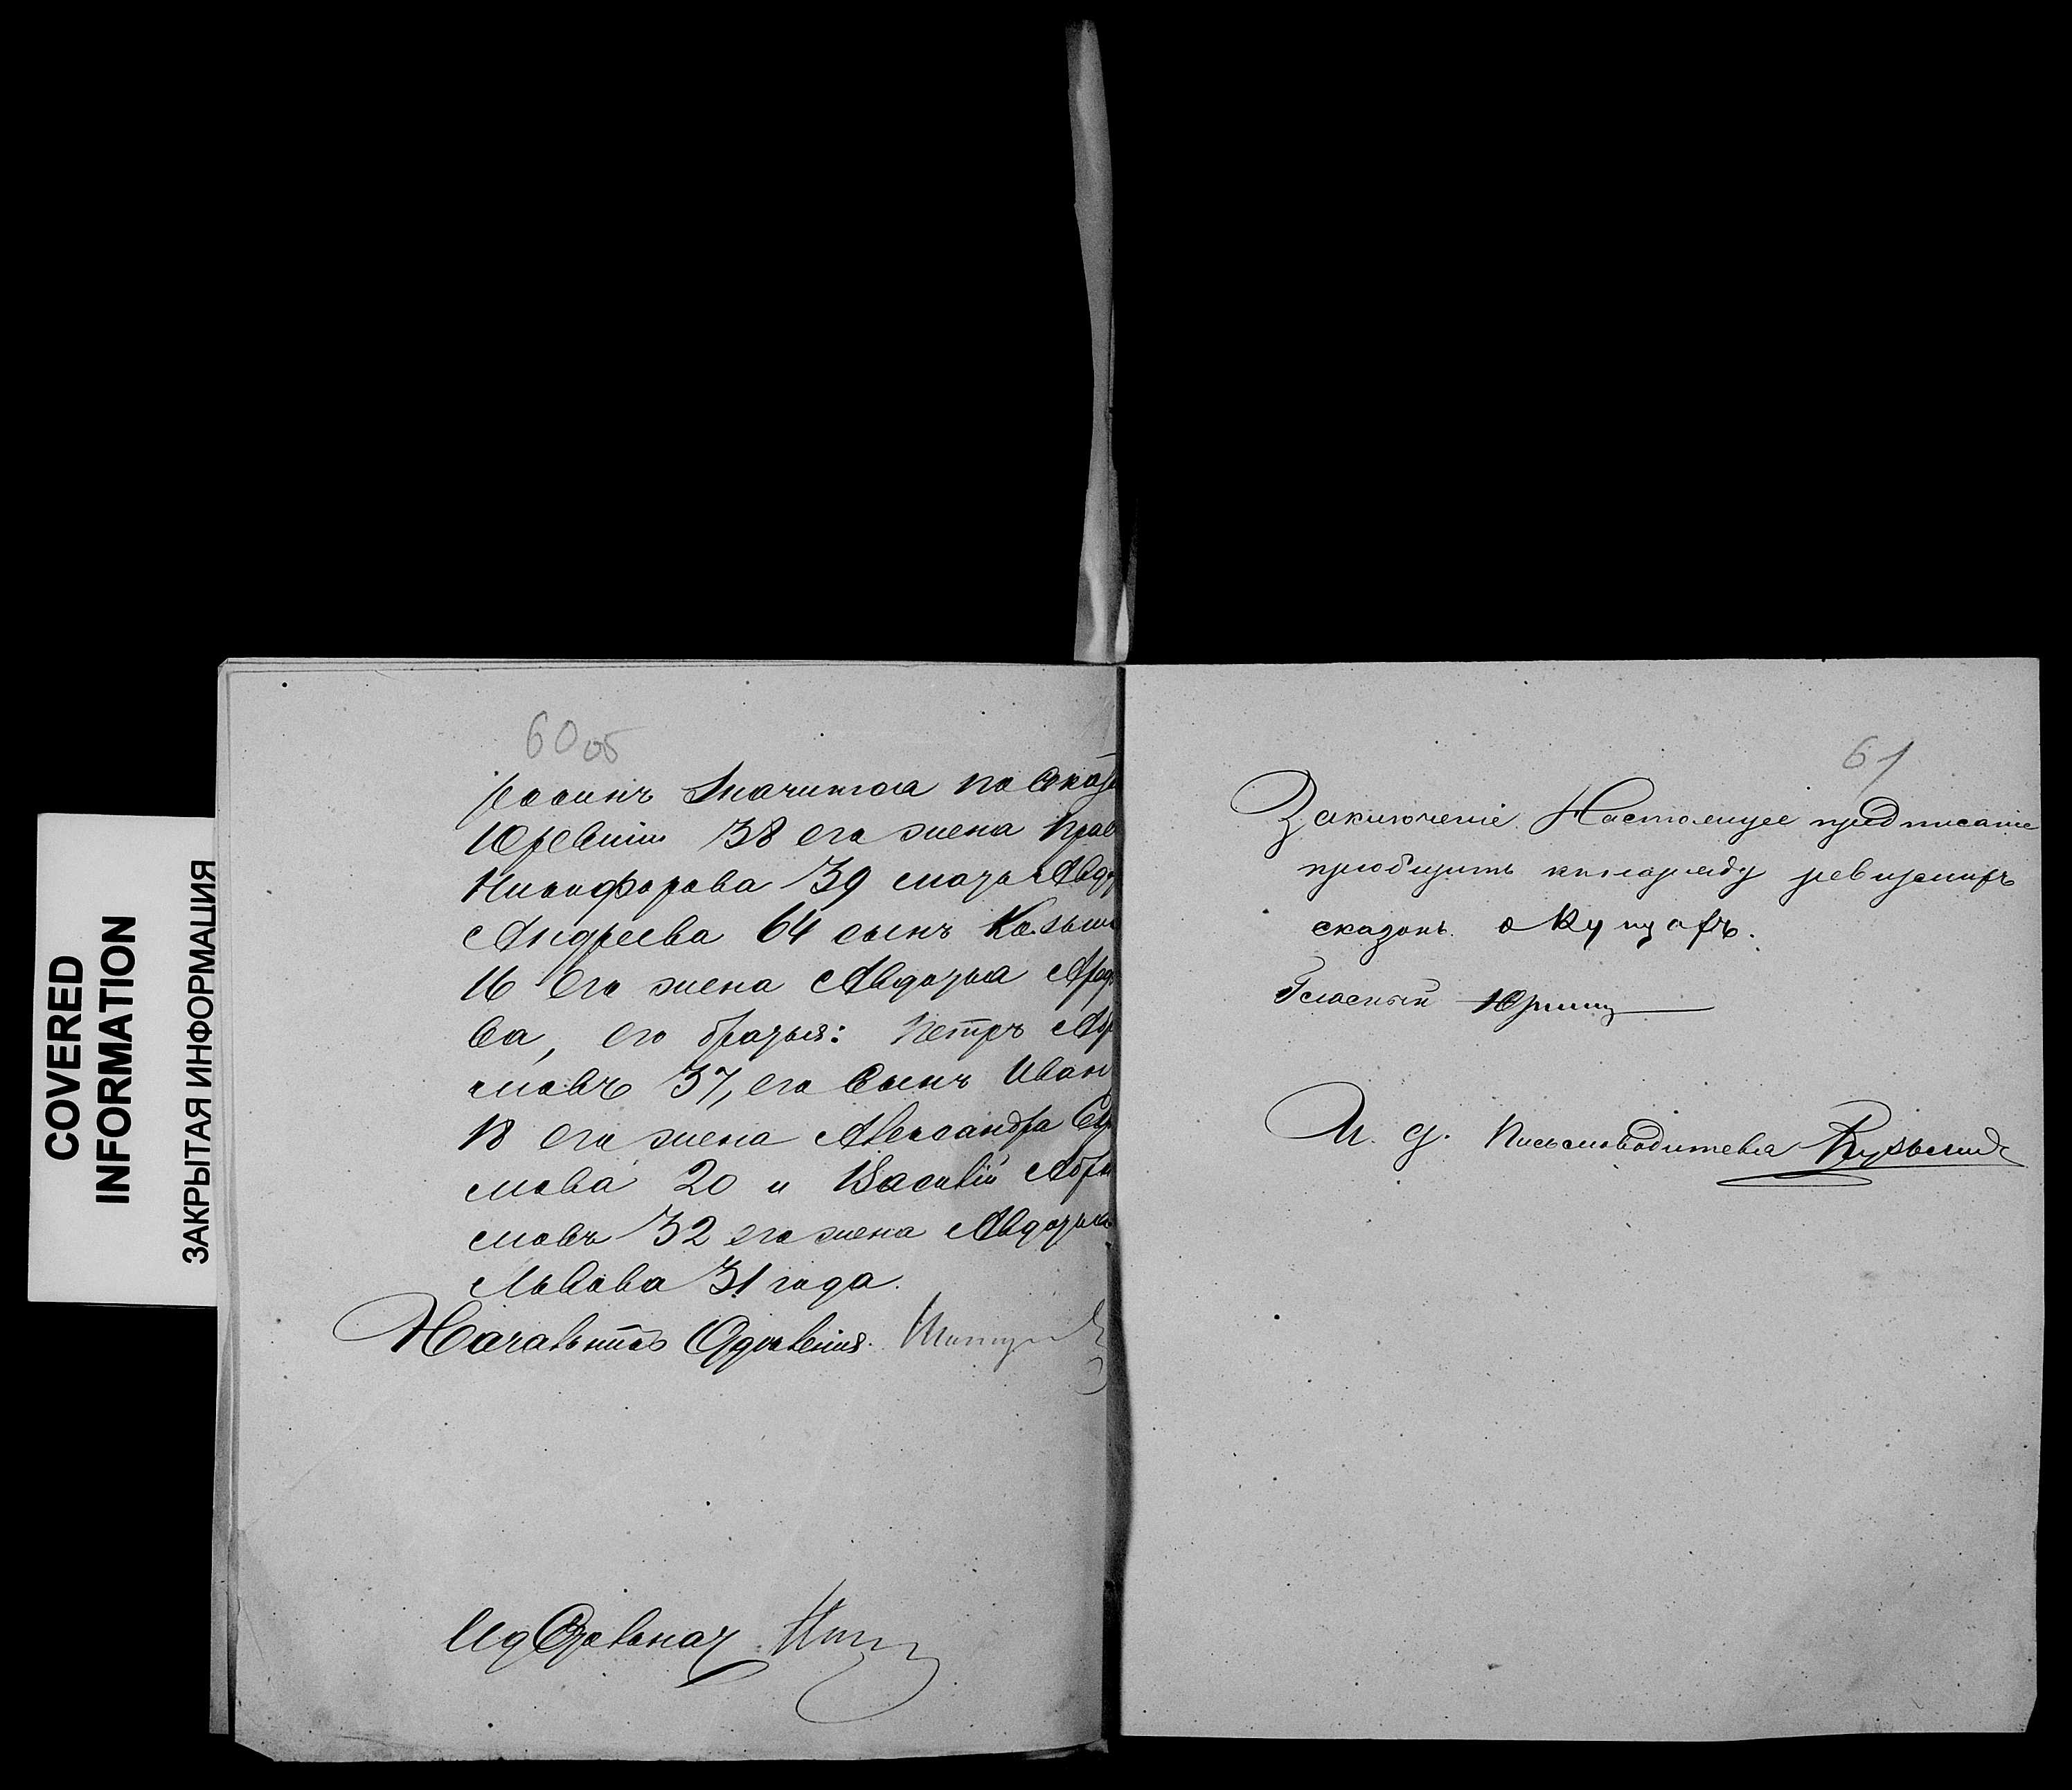 COVERED
INFORMATION
ЗАКРЫТАЯ ИНФОРМАЦИЯ
60 об
значится по
38 его жена
Никифорова 39
Андреева 64 сынъ Козьма
16 его жена Авдотья
ва, его братья: Петръ
мовъ 37, его сынъ Иван
18 его жена Александра
мова 20 и Василій Абра
мовъ 32 его жена Авдотья
Львова 31 года.
Начальникъ Отделенія
Ид Столонач
61
Заключеніе. Настоящее предписаніе
пріобщить къ наряду ревизскихъ
сказокъ о купцахъ.
Гласный
И. д. Письмоводителя